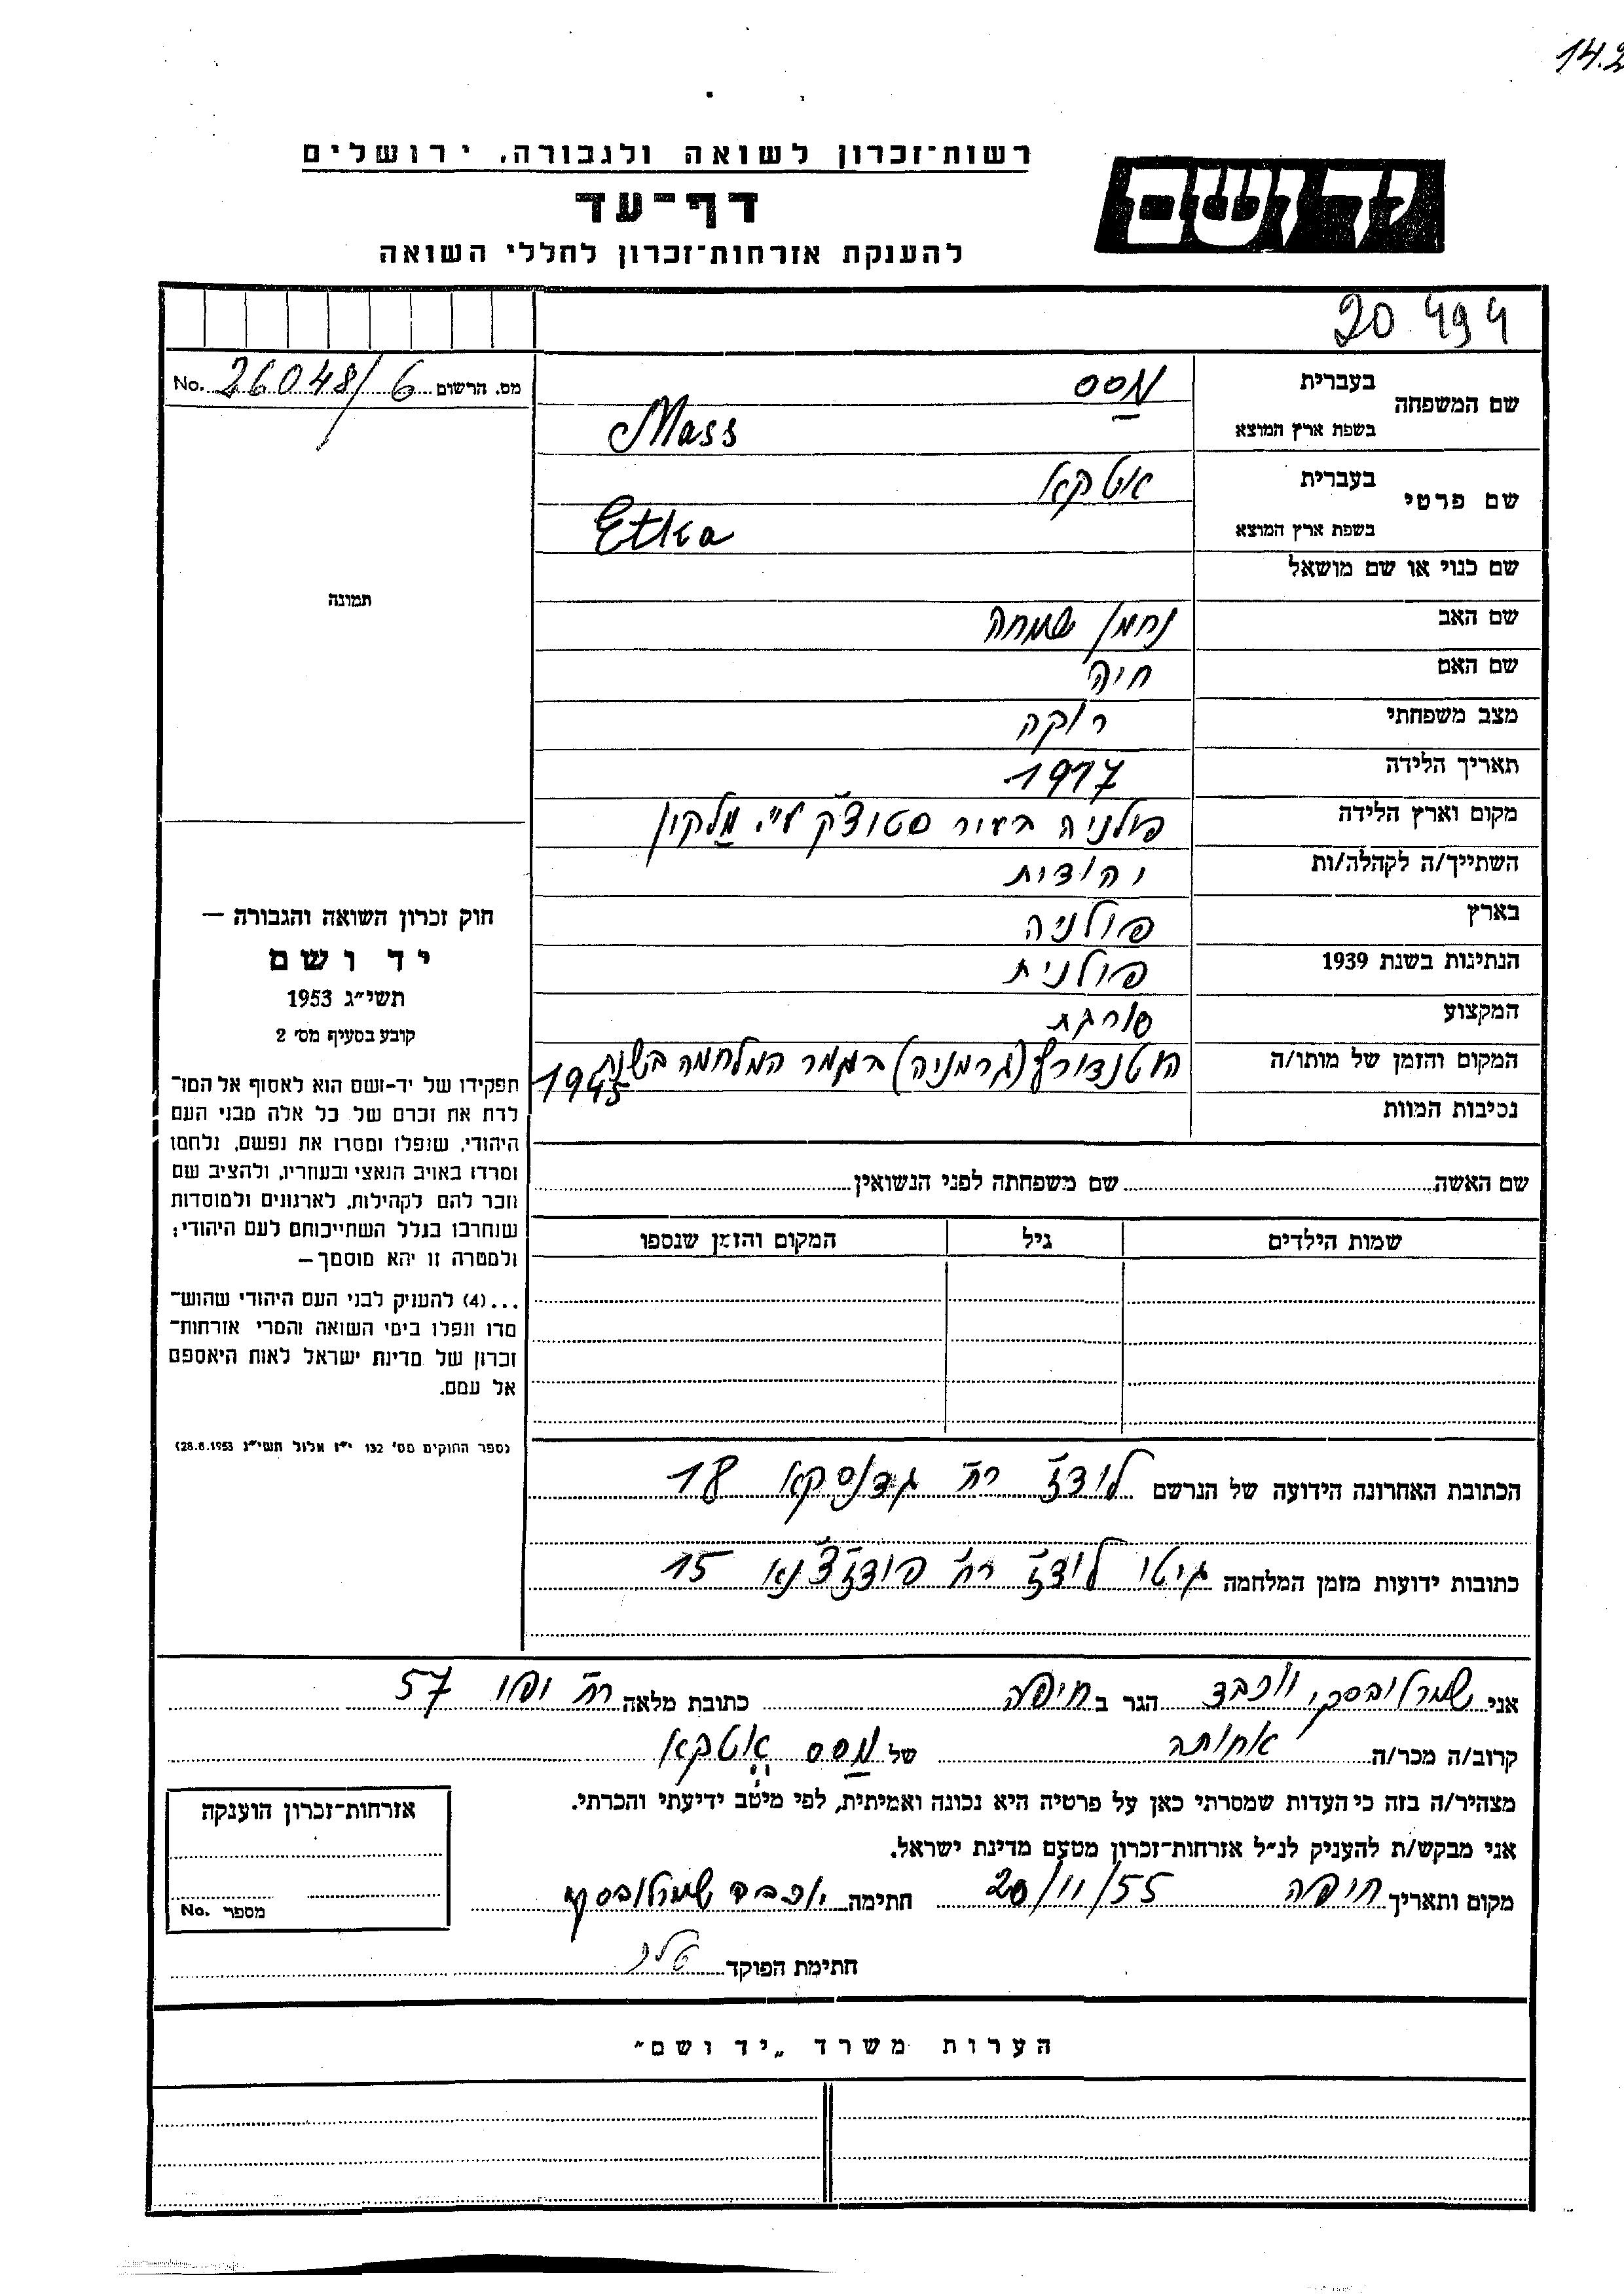 14.2
רשות־זכרון לשואה ולגבורה, ירושלים
יד ושם
דף־עד
להענקת אזרחות־זכרון לחללי השואה
20 494
מס. הרשום 26048/6 No.
שם המשפחה
בעברית מַסס
בשפת ארץ המוצא Mass
שם פרטי
בעברית אטקא
בשפת ארץ המוצא Etka
שם כנוי או שם מושאל
תמונה
שם האב נחמן שמחה
שם האם חיה
מצב משפחתי רוקה
תאריך הלידה 1917
מקום וארץ הלידה פולניה בעיר סטוצ'ק ע"י מַלקין
השתייך/ה לקהלה/ות יהודית
בארץ פולניה
הנתינות בשנת 1939 פולנית
המקצוע סורגת
המקום והזמן של מותו/ה (גרמניה) בגמר המלחמה בשנת 1945
נסיבות המוות
חוק זכרון השואה והגבורה —
יד ושם
תשי״ג 1953
קובע בסעיף מס׳ 2
תפקידו של יד-ושם הוא לאסוף אל המו־
לדת את זכרם של כל אלה מבני העם
היהודי, שנפלו ומסרו את נפשם, נלחמו
ומרדו באויב הנאצי ובעוזריו, ולהציב שם
וזכר להם לקהילות, לארגונים ולמוסדות
שנחרבו בגלל השתייכותם לעם היהודי;
ולמטרה זו יהא מוסמך—
...(4) להעניק לבני העם היהודי שהוש־
מדו ונפלו בימי השואה והמרי אזרחות־
זכרון של מדינת ישראל לאות היאספם
אל עמם.
(ספר החוקים מס׳ 132 י״ז אלול תשי״ג 28.8.1953)
שם האשה שם משפחתה לפני הנשואין
שמות הילדים גיל המקום והזמן שנספו
הכתובת האחרונה הידועה של הנרשם לודז' רח' גדנסקא 18
כתובות ידועות מזמן המלחמה גיטו לודז' רח' 15
אני יוכבד הגר ב חיפה כתובת מלאה רח' יפו 57
קרוב/ה מכר/ה אחותה של מַסס אטקא
מצהיר/ה בזה כי העדות שמסרתי כאן על פרטיה היא נכונה ואמיתית, לפי מיטב ידיעתי והכרתי.
אני מבקש/ת להעניק לנ״ל אזרחות־זכרון מטעם מדינת ישראל.
מקום ותאריך חיפה 20/11/55 חתימה יוכבד
חתימת הפוקד
אזרחות־זכרון הוענקה
מספר No.
הערות משרד „יד ושם״